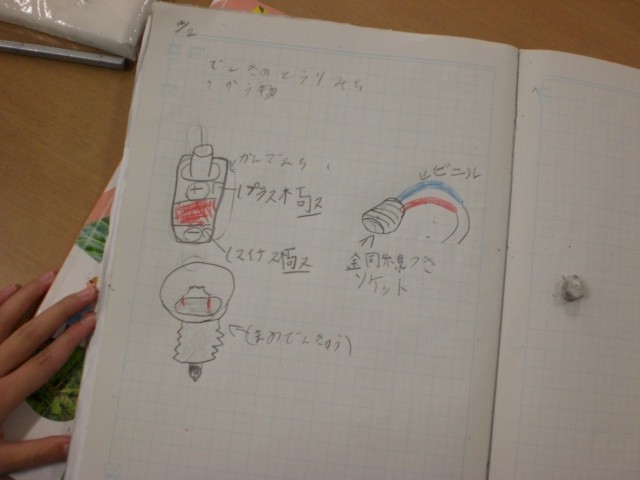 でんきのとうりみち
つかう物
かんでんち
プラス極
マイナス極
(まめでんきゅう)
ビニル
銅線つき
ソケット